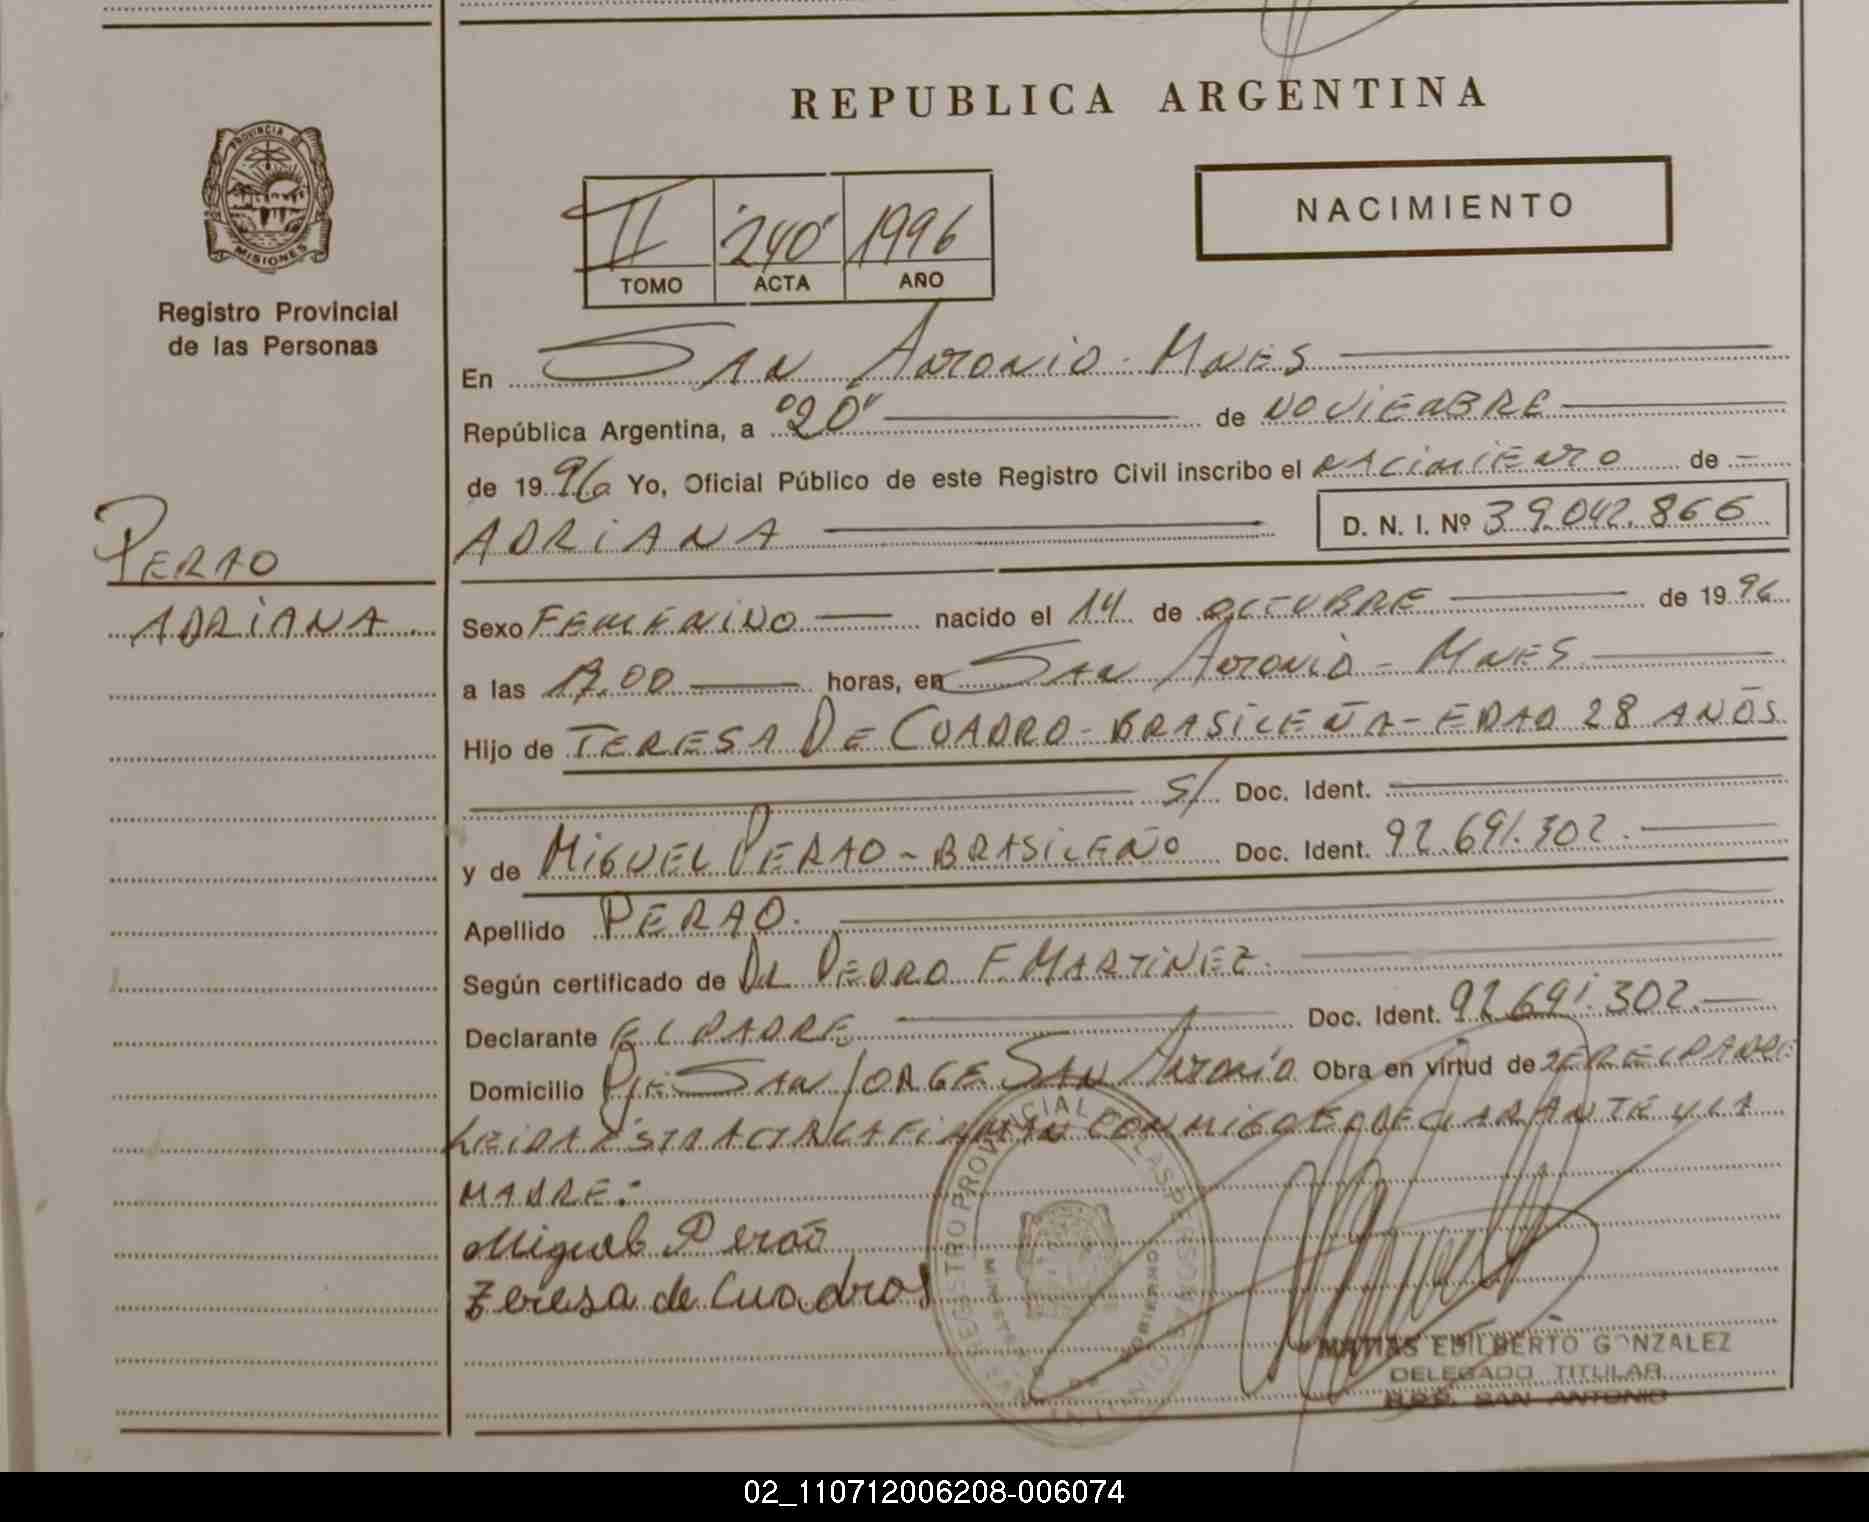 REPUBLICA ARGENTINA
PROVINCIA D
MISIONES
Registro Provincial
de las Personas
NACIMIENTO
II "240" 1996
TOMO ACTA AÑO
En SAN ANTONIO - MNES
República Argentina, a "20" de NOVIEMBRE
de 1996 Yo, Oficial Público de este Registro Civil inscribo el NACIMIENTO de -
PERAO
ADRIANA
ADRIANA D. N. I. Nº 39.042.866
Sexo FEMENINO nacido el 14 de OCTUBRE de 1996
a las 17.00 horas, en SAN ANTONIO - MNES
Hijo de TERESA DE CUADRO - BRASILEÑA - EDAD 28 AÑOS
S/ Doc. Ident.
y de MIGUEL PERAO - BRASILEÑO Doc. Ident. 92.691.302.
Apellido PERAO.
Según certificado de DR PEDRO F MARTINEZ.
Declarante EL PADRE Doc. Ident. 92.691.302.
Domicilio PJE SAN JORGE SAN ANTONIO Obra en virtud de SER EL PADRE
LEIDA ESTA ACTA LA FIRMAN CONMIGO EL DECLARANTE Y LA
MADRE:
Miguel Perão
Teresa de Cuadros
REGISTRO PROVINCIAL DE LAS PERSONAS
MINISTERIO DE GOBIERNO
MATIAS EDILBERTO GONZALEZ
DELEGADO TITULAR
R.P.P. SAN ANTONIO
02_110712006208-006074